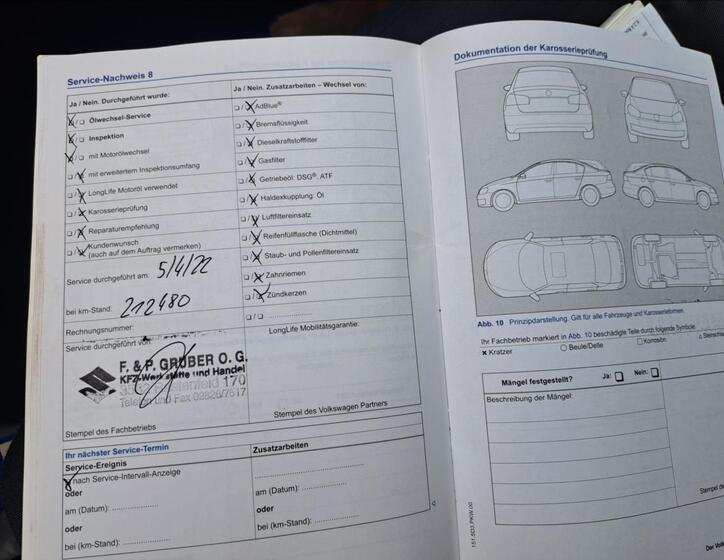 Service-Nachweis 8
Ja / Nein. Durchgeführt wurde:
❏ / ❏ Ölwechsel-Service
❏ / ❏ Inspektion
❏ / ❏ mit Motorölwechsel
❏ / ❏ mit erweitertem Inspektionsumfang
❏ / ❏ LongLife Motoröl verwendet
❏ / ❏ Karosserieprüfung
❏ / ❏ Reparaturempfehlung
❏ / ❏ Kundenwunsch
(auch auf dem Auftrag vermerken)
Service durchgeführt am: 5/4/22
bei km-Stand: 212480
Rechnungsnummer:
Service durchgeführt von:
F. & P. GRUBER O. G.
KFZ-Werkstätte und Handel
170
Telefon und Fax 02826/7517
Stempel des Fachbetriebs
Ja / Nein. Zusatzarbeiten – Wechsel von:
❏ / ❏ AdBlue®
❏ / ❏ Bremsflüssigkeit
❏ / ❏ Dieselkraftstofffilter
❏ / ❏ Gasfilter
❏ / ❏ Getriebeöl: DSG®, ATF
❏ / ❏ Haldexkupplung: Öl
❏ / ❏ Luftfiltereinsatz
❏ / ❏ Reifenfüllflasche (Dichtmittel)
❏ / ❏ Staub- und Pollenfiltereinsatz
❏ / ❏ Zahnriemen
❏ / ❏ Zündkerzen
❏ / ❏ ....................
LongLife Mobilitätsgarantie:
Stempel des Volkswagen Partners
Ihr nächster Service-Termin
Service-Ereignis
nach Service-Intervall-Anzeige
oder
am (Datum): ....................
oder
bei (km-Stand): ....................
Zusatzarbeiten
....................
am (Datum): ....................
oder
bei (km-Stand): ....................
Dokumentation der Karosserieprüfung
Abb. 10 Prinzipdarstellung. Gilt für alle Fahrzeuge und Karosserieformen.
Ihr Fachbetrieb markiert in Abb. 10 beschädigte Teile durch folgende Symbole:
× Kratzer ○ Beule/Delle □ Korrosion △ Steinschlag
Mängel festgestellt? Ja: ❏ Nein: ❏
Beschreibung der Mängel:
Stempel de
151.5D3.PKW.00
Der Vol